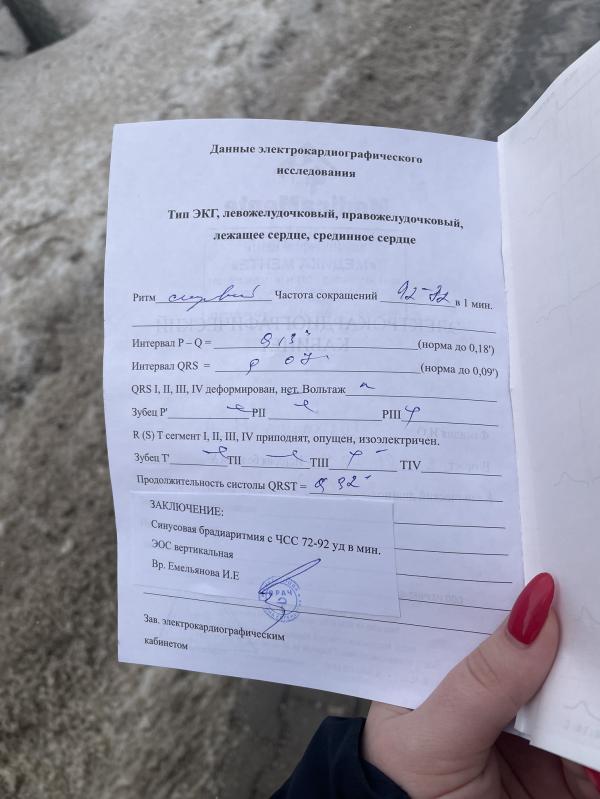 Данные электрокардиографического
исследования
Тип ЭКГ, левожелудочковый, правожелудочковый,
лежащее сердце, срединное сердце
Ритм Частота сокращений 92-72 в 1 мин.
Интервал P – Q = 0,13" (норма до 0,18')
Интервал QRS = 0,07 (норма до 0,09')
QRS I, II, III, IV деформирован, нет. Вольтаж
Зубец P' PII PIII
R (S) T сегмент I, II, III, IV приподнят, опущен, изоэлектричен.
Зубец T' TII TIII TIV
Продолжительность систолы QRST = 0,32"
ЗАКЛЮЧЕНИЕ:
Синусовая брадиаритмия с ЧСС 72-92 уд в мин.
ЭОС вертикальная
Вр. Емельянова И.Е
ВРАЧ
Зав. электрокардиографическим
кабинетом